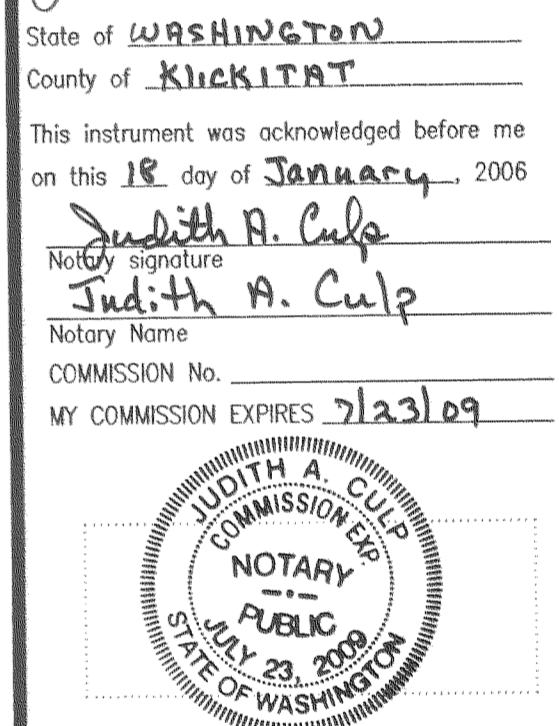 State of WASHINGTON
County of KlickITAT
This instrument was acknowledged before me
on this 18 day of January, 2006
Judith A. Culp
Notary signature
Judith A. Culp
Notary Name
COMMISSION No.
MY COMMISSION EXPIRES 7/23/09
JUDITH A. CULP
COMMISSION EXP.
NOTARY
PUBLIC
JULY 23, 2009
STATE OF WASHINGTON